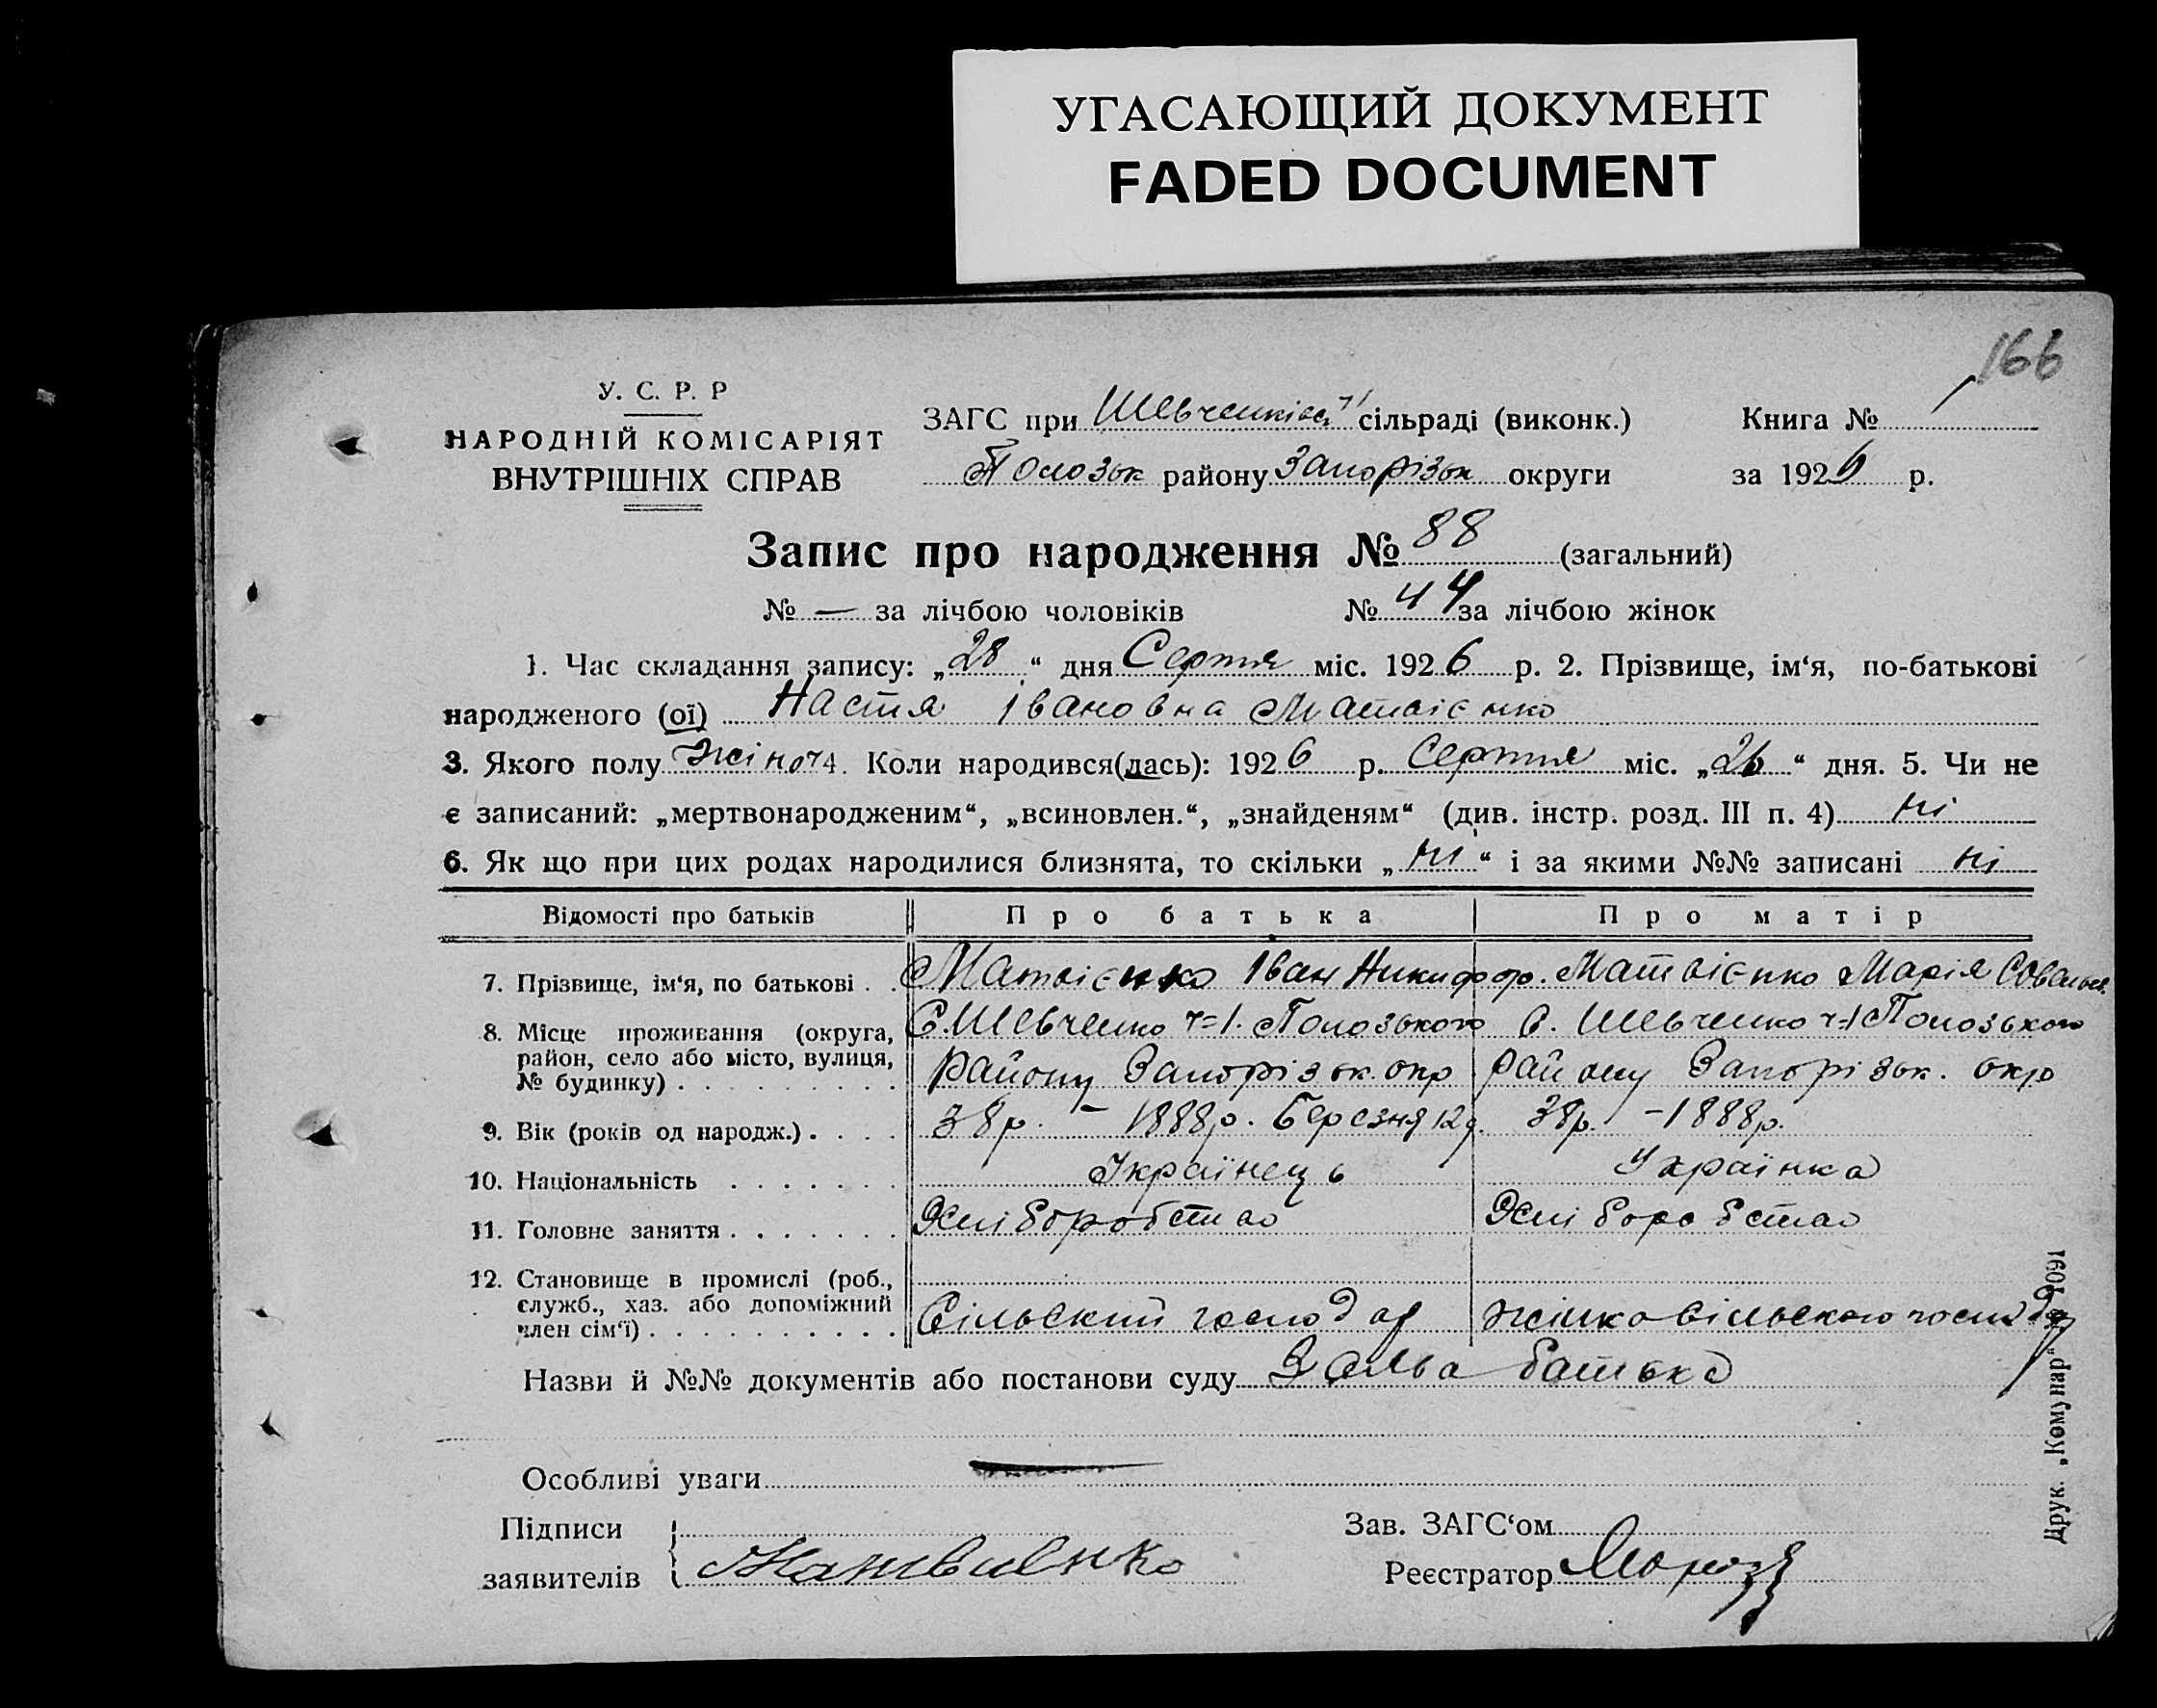 УГАСАЮЩИЙ ДОКУМЕНТ
FADED DOCUMENT
166
У. С. Р. Р
НАРОДНІЙ КОМІСАРІЯТ
ВНУТРІШНІХ СПРАВ
ЗАГС при Шевченківськ сільраді (виконк.) Книга № 1
Полозьк району Запорізьк округи за 1926 р.
Запис про народження № 88 (загальний)
№ — за лічбою чоловіків № 44 за лічбою жінок
1. Час складання запису: „28“ дня Серпня міс. 1926 р. 2. Прізвище, ім‘я, по-батькові
народженого (ої) Настя Івановна Матвієнко
3. Якого полу жіноч 4. Коли народився(лась): 1926 р. Серпня міс. „26“ дня. 5. Чи не
є записаний: „мертвонародженим“, „всиновлен.“, „знайденям“ (див. інстр. розд. III п. 4) ні
6. Як що при цих родах народилися близнята, то скільки „ні“ і за якими №№ записані ні
Відомості про батьків Про батька Про матір
7. Прізвище, ім‘я, по батькові . . Матвієнко Іван Никифор. Матвієнко Марія
8. Місце проживання (округа, район, село або місто, вулиця, № будинку) . . . . . . . . .
С. Шевченко ч=1. Полозького С. Шевченко ч=1 Полозького
Району Запорізьк. окр Району Запорізьк. окр
9. Вік (років од народж.) . . . . 38р. – 1888р. Березня 12д. 38р. – 1888р.
10. Національність . . . . . . . Українець Українка
11. Головне заняття . . . . . . . Хліборобство Хліборобство
12. Становище в промислі (роб.,
служб., хаз. або допоміжний
член сім‘ї) . . . . . . . . . . Сільский господар жінка сільского господар
Назви й №№ документів або постанови суду Заява батька
Особливі уваги —
Підписи
заявителів Матвиенко
Зав. ЗАГС‘ом
Реєстратор Мороз
Друк. „Комунар“ 1091